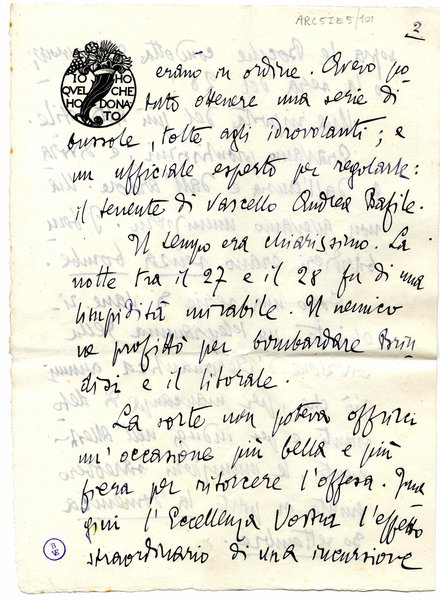 ARC5IE5/101
2
IO HO
QUEL CHE
HO DONA
TO
erano in ordine. Avevo po=
tuto ottenere una serie di
bussole, tolte agli idrovolanti; e
un ufficiale esperto per regolarle:
il tenente di vascello Andrea Bafile.
Il tempo era chiarissimo. La
notte tra il 27 e il 28 fu di una
limpidità mirabile. Il nemico
ne profittò per bombardare Brin
disi e il litorale.
La sorte non poteva offrirci
un'occasione più bella e più
fiera per ritorcere l'offesa. Imma
gini l'Eccellenza Vostra l'effetto
straordinario di una incursione